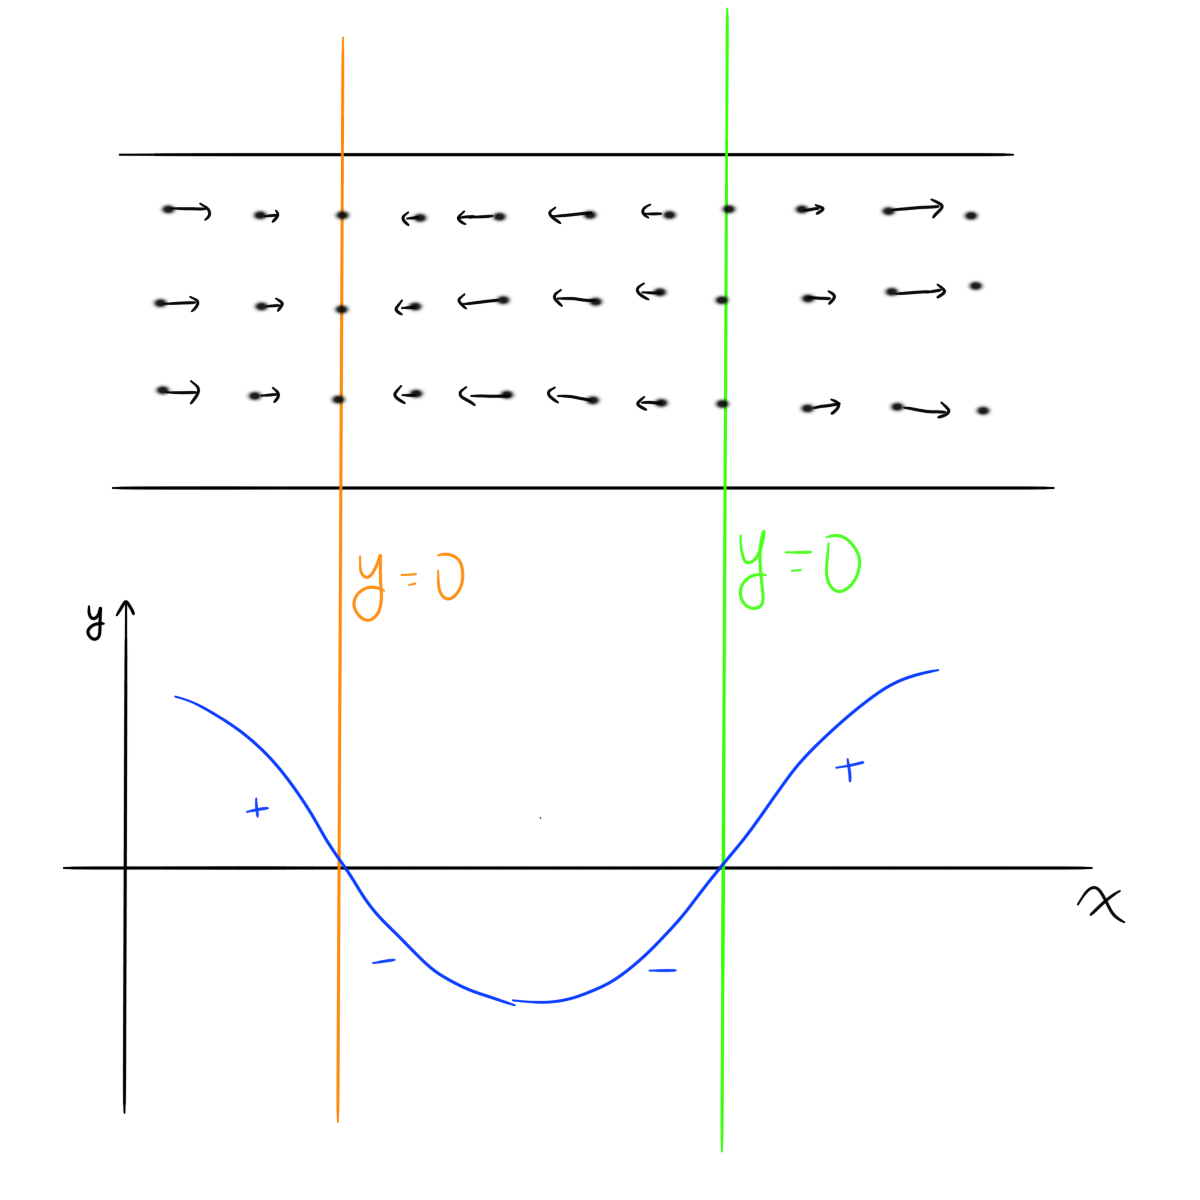 y = 0
y = 0
y
+
+
x
−
−